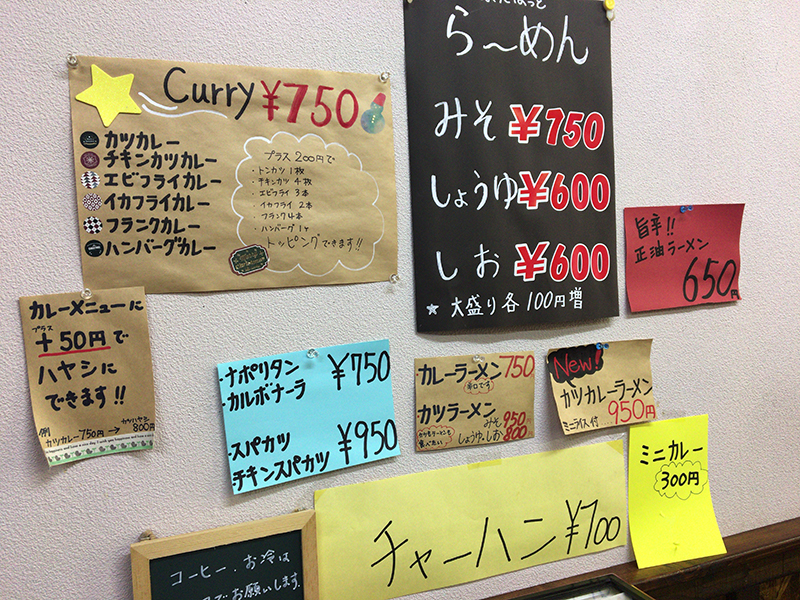 Curry ¥750
カツカレー
チキンカツカレー
エビフライカレー
イカフライカレー
フランクカレー
ハンバーグカレー
プラス200円で
・トンカツ1枚
・チキンカツ4枚
・エビフライ3本
・イカフライ2本
・フランク4本
・ハンバーグ1ケ
トッピングできます!!
ら〜めん
みそ ¥750
しょうゆ ¥600
しお ¥600
★大盛り各100円増
旨辛!!
正油ラーメン
650円
カレーメニューに
プラス
+50円で
ハヤシに
できます!!
例
カツカレー750円→カツハヤシ800円
・ナポリタン
・カルボナーラ
¥750
・スパカツ
・チキンスパカツ
¥950
カレーラーメン 750
辛口です
カツラーメン
みそ 950
しょうゆ、しお 800
New!
カツカレーラーメン
ミニライス付 950円
ミニカレー
300円
チャーハン ¥700
コーヒー、お冷は
でお願いします。